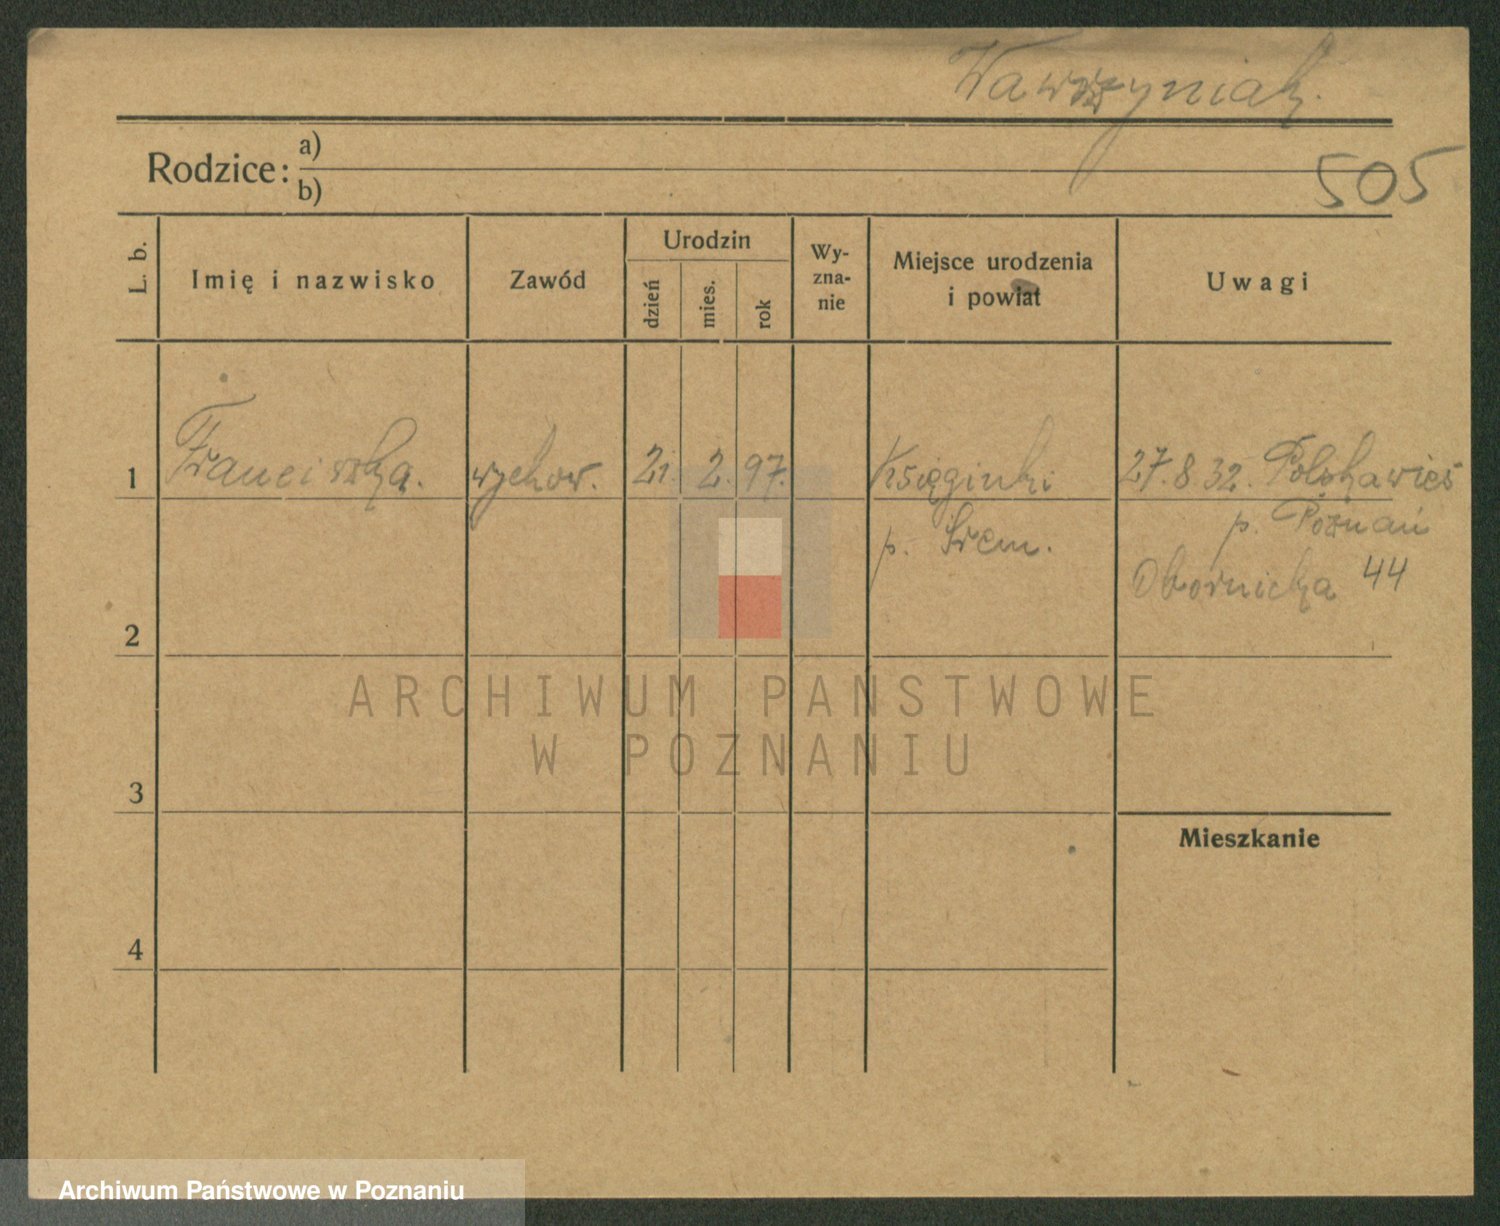 Wawrzyniak.
505
Rodzice: a)
b)
L. b.
Imię i nazwisko
Zawód
Urodzin
dzień
mies.
rok
Wy-
zna-
nie
Miejsce urodzenia
i powiat
Uwagi
1 Franciszka. wychow. 21. 2. 97. Księginki 27.8.32. Polskawieś
p. Śrem. p. Poznań
Obornicka 44
2
3
Mieszkanie
4
ARCHIWUM PAŃSTWOWE
W POZNANIU
Archiwum Państwowe w Poznaniu